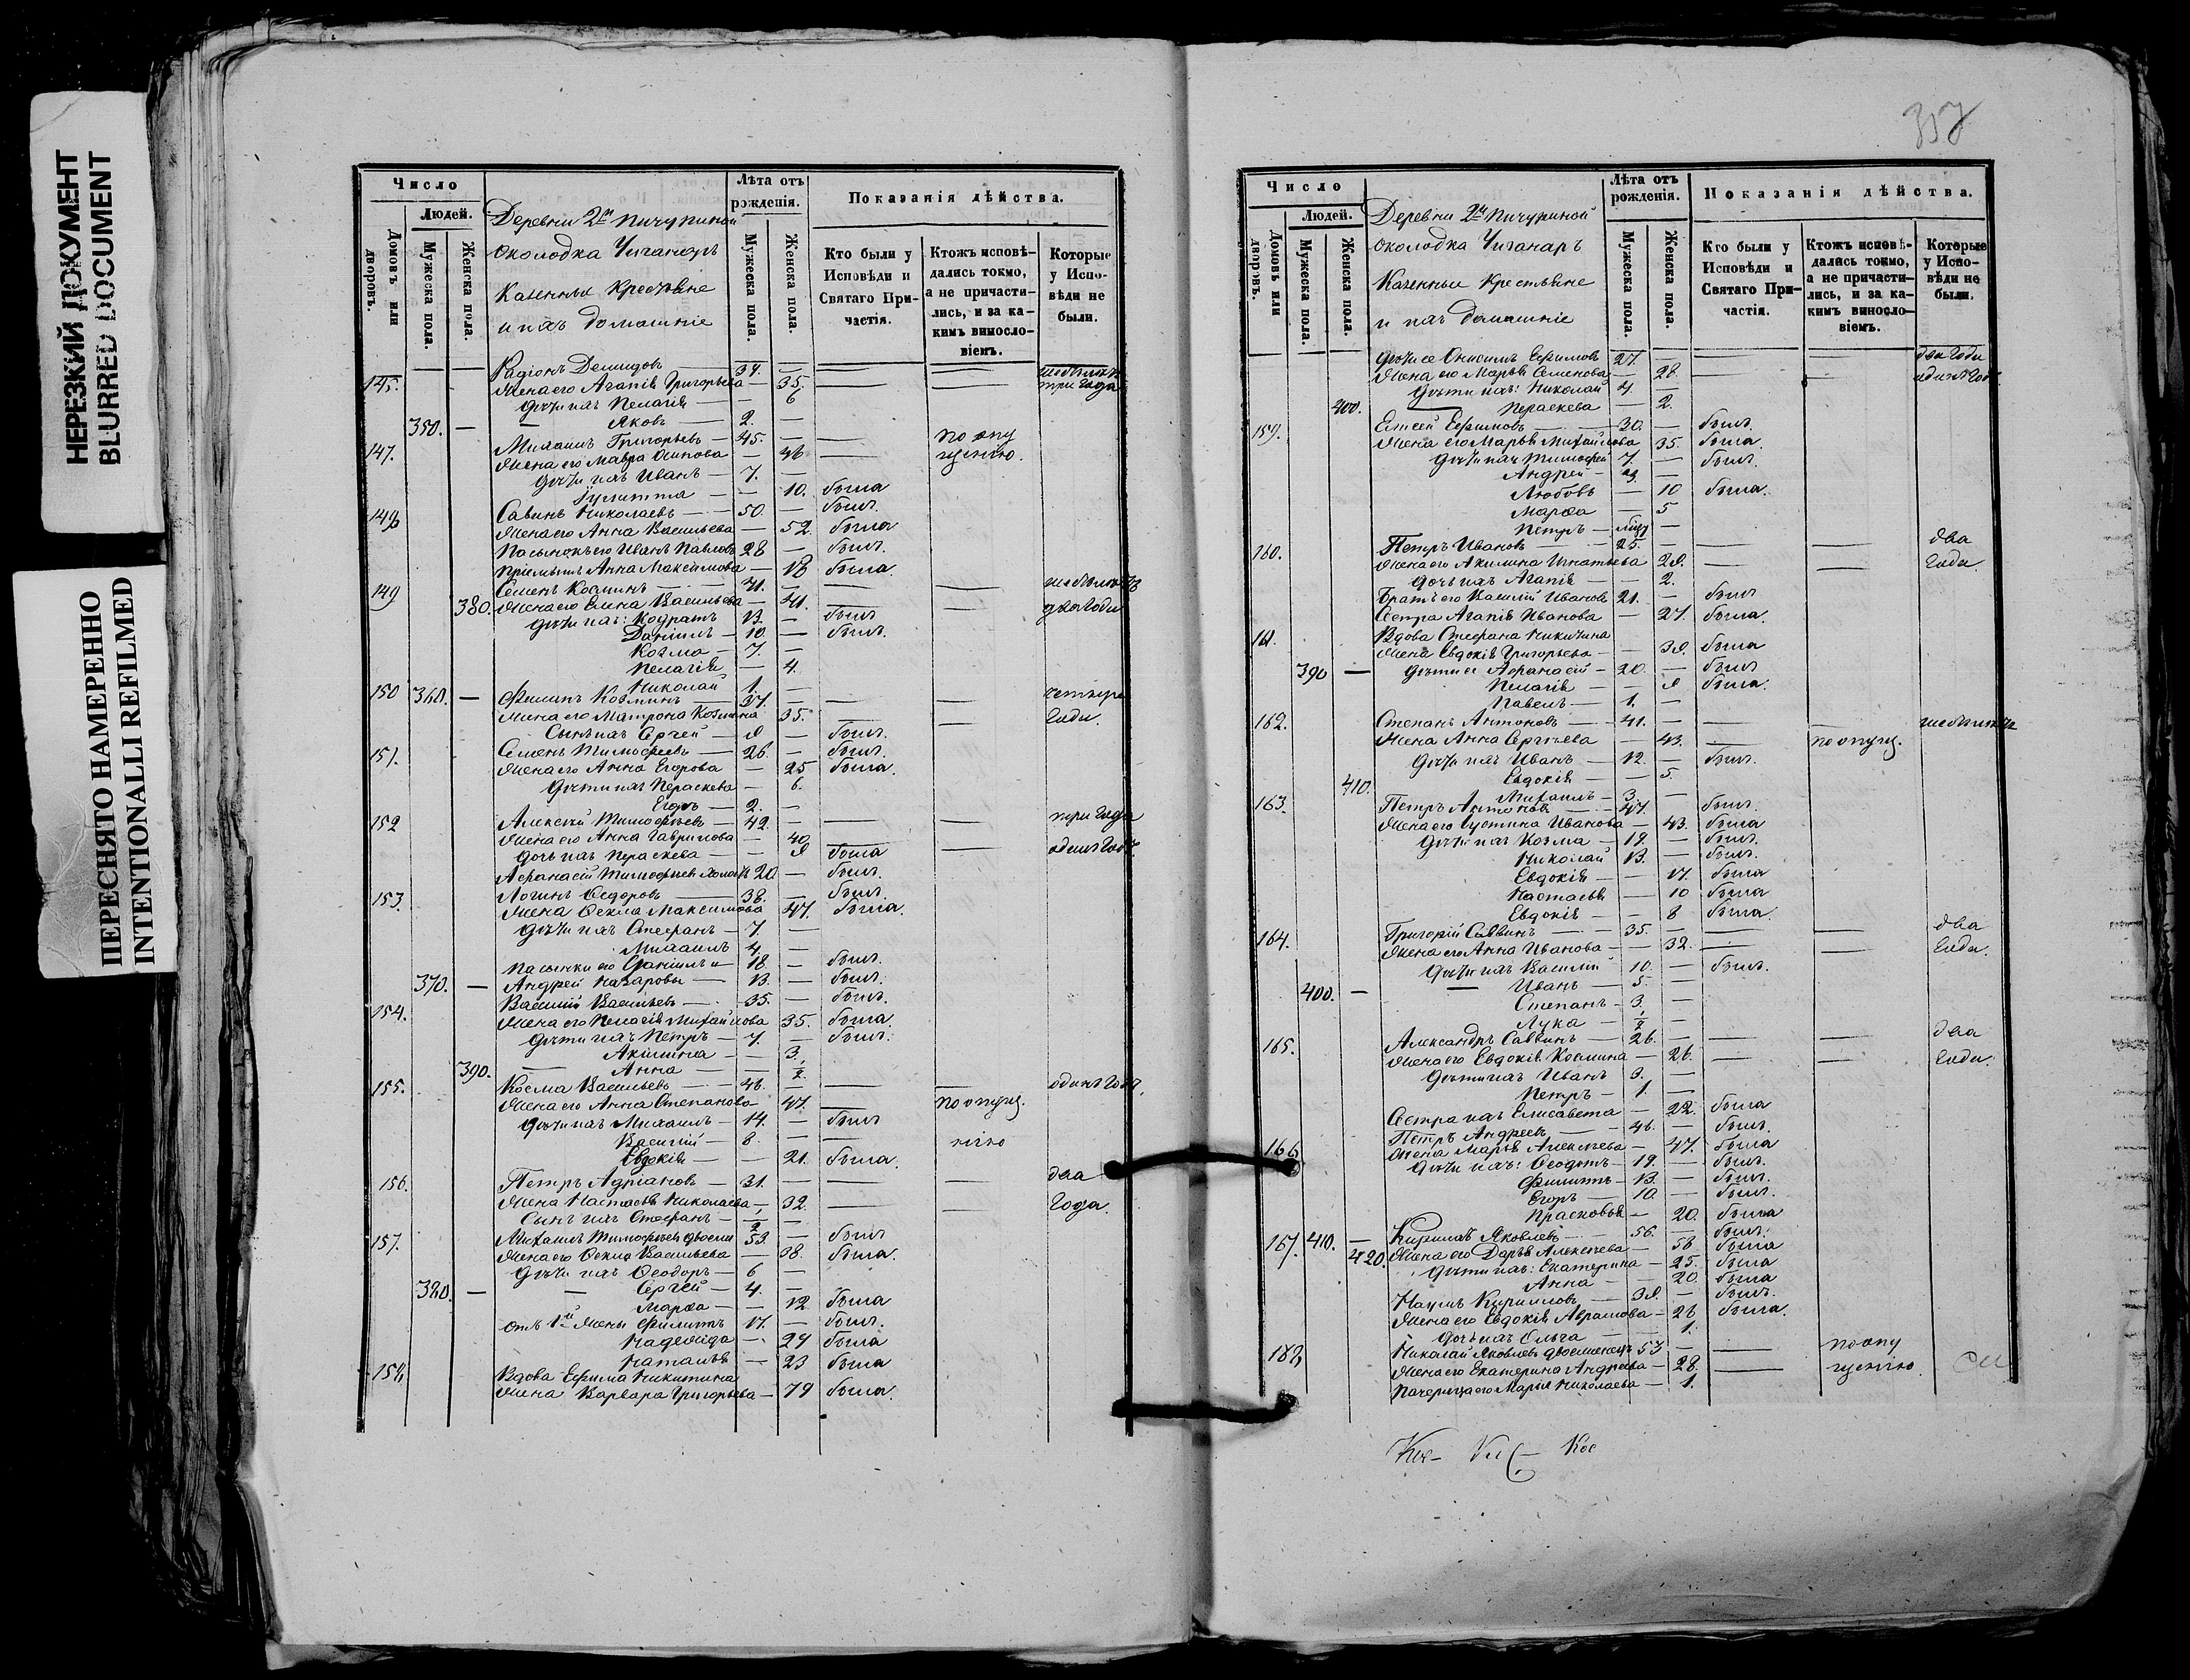 НЕРЕЗКИЙ ДОКУМЕНТ
BLURRED DOCUMENT
ПЕРЕСНЯТО НАМЕРЕННО
INTENTIONALLI REFILMED
Число
Людей.
Домовъ или дворовъ.
Мужеска пола.
Женска пола.
Деревни 2й Пичуриной
околодка Чиганаръ
Казенные крестьяне
и ихъ домашніе
Лѣта отъ рожденія.
Мужеска пола.
Женска пола.
Показанія дѣйства.
Кто были у Исповѣди и Святаго Причастія.
Ктожъ исповѣдались токмо, а не причастились, и за какимъ винословіемъ.
Которые у Исповѣди не были.
Радіонъ Демидовъ 39.
145. Жена его Агапія Григорьева — 35. три года
Дѣти ихъ Пелагія — 6
350. — Яковъ — 2. —
Михаилъ Григорьевъ — 45. — по опу
147. Жена его Мавра Осипова — 46 — щенію.
Дѣти ихъ Иванъ — 7.
Іулитта — 10. была
149 Савинъ Николаевъ — 50 — былъ.
Жена его Анна Васильева — 52. была
Пасынокъ его Иванъ Павловъ 28 — былъ.
Анна Максимова — 18 была.
149 Семенъ Косминъ — 41. —
380. Жена его Елена Васильева — 41. два года
Дѣти ихъ: Кодратъ 13. — былъ
Даніилъ — 10. — былъ.
Козма — 7. —
Пелагія — 4.
Николай 1. —
150 360. — Филипъ Козминъ — 37. — четыре
Жена его Матрона Козмина 35. — года.
Сынъ ихъ Сергей — 9 — былъ.
151. Семенъ Тимофеевъ — 26. — былъ.
Жена его Анна Егорова — 25 была.
Дѣти ихъ Пераскева — 6.
Егоръ — 2. —
152 Алексѣй Тимофѣевъ — 42. — три года
Жена его Анна Гаврилова — 40. —
Дочь ихъ Пераскева — 9 была — одинъ годъ.
Афанасій Тимофѣевъ 20 — былъ.
153. Логинъ Ѳедоровъ 38. — былъ.
Жена Ѳекла Максимова 47. была.
Дѣти ихъ Стефанъ — 7. —
Михаилъ 4. —
Пасынки его Даніилъ и 18. — былъ.
370. — Андрей Назаровы — 13. — былъ.
154. Василій Васильевъ — 35. — былъ.
Жена его Пелагія Михайлова 35. была.
Дѣти ихъ Петръ — 7. — былъ.
Акилина — 3.
390. Анна — ½
155. Косма Васильевъ — 46. — одинъ годъ.
Жена его Анна Степанова 47. — по опущ.
Дѣти ихъ Михаилъ — 14. — былъ
Василій — 8. — нію
Евдокія — 21. была.
156. Петръ Адріановъ — 31. — два
Жена Настасья Николаева — 32. — года.
Сынъ ихъ Стефанъ — ½ —
157. Михаилъ Тимофѣевъ 53. — былъ
Жена его Ѳекла Васильева — 38. была.
Дѣти ихъ Ѳеодоръ — 6 —
380. — Сергей — 4. —
Марѳа — 12. была
отъ 1й жены Филиппъ 17. — былъ.
Надежда — 24 была
Наталья — 23 была
158 Вдова Ефима Никитина
жена Варвара Григорьева — 79 была.
357
Число
Людей.
Домовъ или дворовъ.
Мужеска пола.
Женска пола.
Деревни 2й Пичуриной
околодка Чиганаръ
Казенные крестьяне
и ихъ домашніе
Лѣта отъ рожденія.
Мужеска пола.
Женска пола.
Показанія дѣйства.
Кто были у Исповѣди и Святаго Причастія.
Ктожъ исповѣдались токмо, а не причастились, и за какимъ винословіемъ.
Которые у Исповѣди не были.
Дѣти ее Онисимъ Ефимовъ 27. — два года
Жена его Марья Семенова — 28. — одинъ годъ
Дѣти ихъ: Николай 4. —
400. Пераскева — 2.
159. Елисей Ефимовъ — 30. — былъ.
Жена его Марья Михайлова 35. была.
Дѣти ихъ Тимофей 7. — былъ.
Андрей — 3. —
Любовь — 10 была.
Марѳа — 5
Петръ —
160. Петръ Ивановъ — 25. — два
Жена его Акилина Игнатьева 29. — года.
Дочь ихъ Агапія — 2.
Братъ его Василій Ивановъ 21. — былъ
Сестра Агапія Иванова — 27. была.
161. Вдова Стефана Никитина
жена Евдокія Григорьева — 39. была
390 — Дѣти ее Афанасій — 20. — былъ
Пелагія — 9 была.
Павелъ — 1. —
162. Степанъ Антоновъ — 41. —
Жена Анна Сергѣева — 43. — по опущ.
Дѣти ихъ Иванъ — 12. — былъ.
410. Евдокія — 5.
Михаилъ — 3. —
163. Петръ Антоновъ — 47. — былъ.
Жена его Іустина Иванова — 43. была
Дѣти ихъ Козма — 19. — былъ.
Николай 13. — былъ.
Евдокія — 17. была
Настасья — 10 была
Евдокія — 8 была.
164. Григорій Саввинъ — 35. — два
Жена его Анна Иванова — 32. — года.
Дѣти ихъ Василій 10. — былъ.
400. — Иванъ — 5. —
Степанъ — 3. —
Лука — ½ —
165. Александръ Саввинъ — 26. — два
Жена его Евдокія Космина — 26. — года.
Дѣти ихъ Иванъ 3. —
Петръ — 1. —
Сестра ихъ Елисавета — 22. была
Петръ Андреевъ — 46. — былъ.
166 Жена Марья Алексѣева — 47. была
Дѣти ихъ: Ѳеодотъ — 19. — былъ.
Филиппъ — 13. — былъ.
Егоръ — 10. — былъ.
Прасковья — 20. была
167. 410. — Кирилъ Яковлевъ — 56. — былъ.
420. Жена его Дарья Алексѣева — 58. была
Дѣти ихъ: Екатерина — 25. была
Анна — 20. была
Наумъ Кирилловъ — 39. — былъ.
Жена его Евдокія Абрамова — 26 была.
Дочь ихъ Ольга — 1.
Николай Яковлевъ двоеженецъ 53 — по опу
Жена его Екатерина Андреева — 28. — щенію.
Падчерица его Марія Николаева — 1.